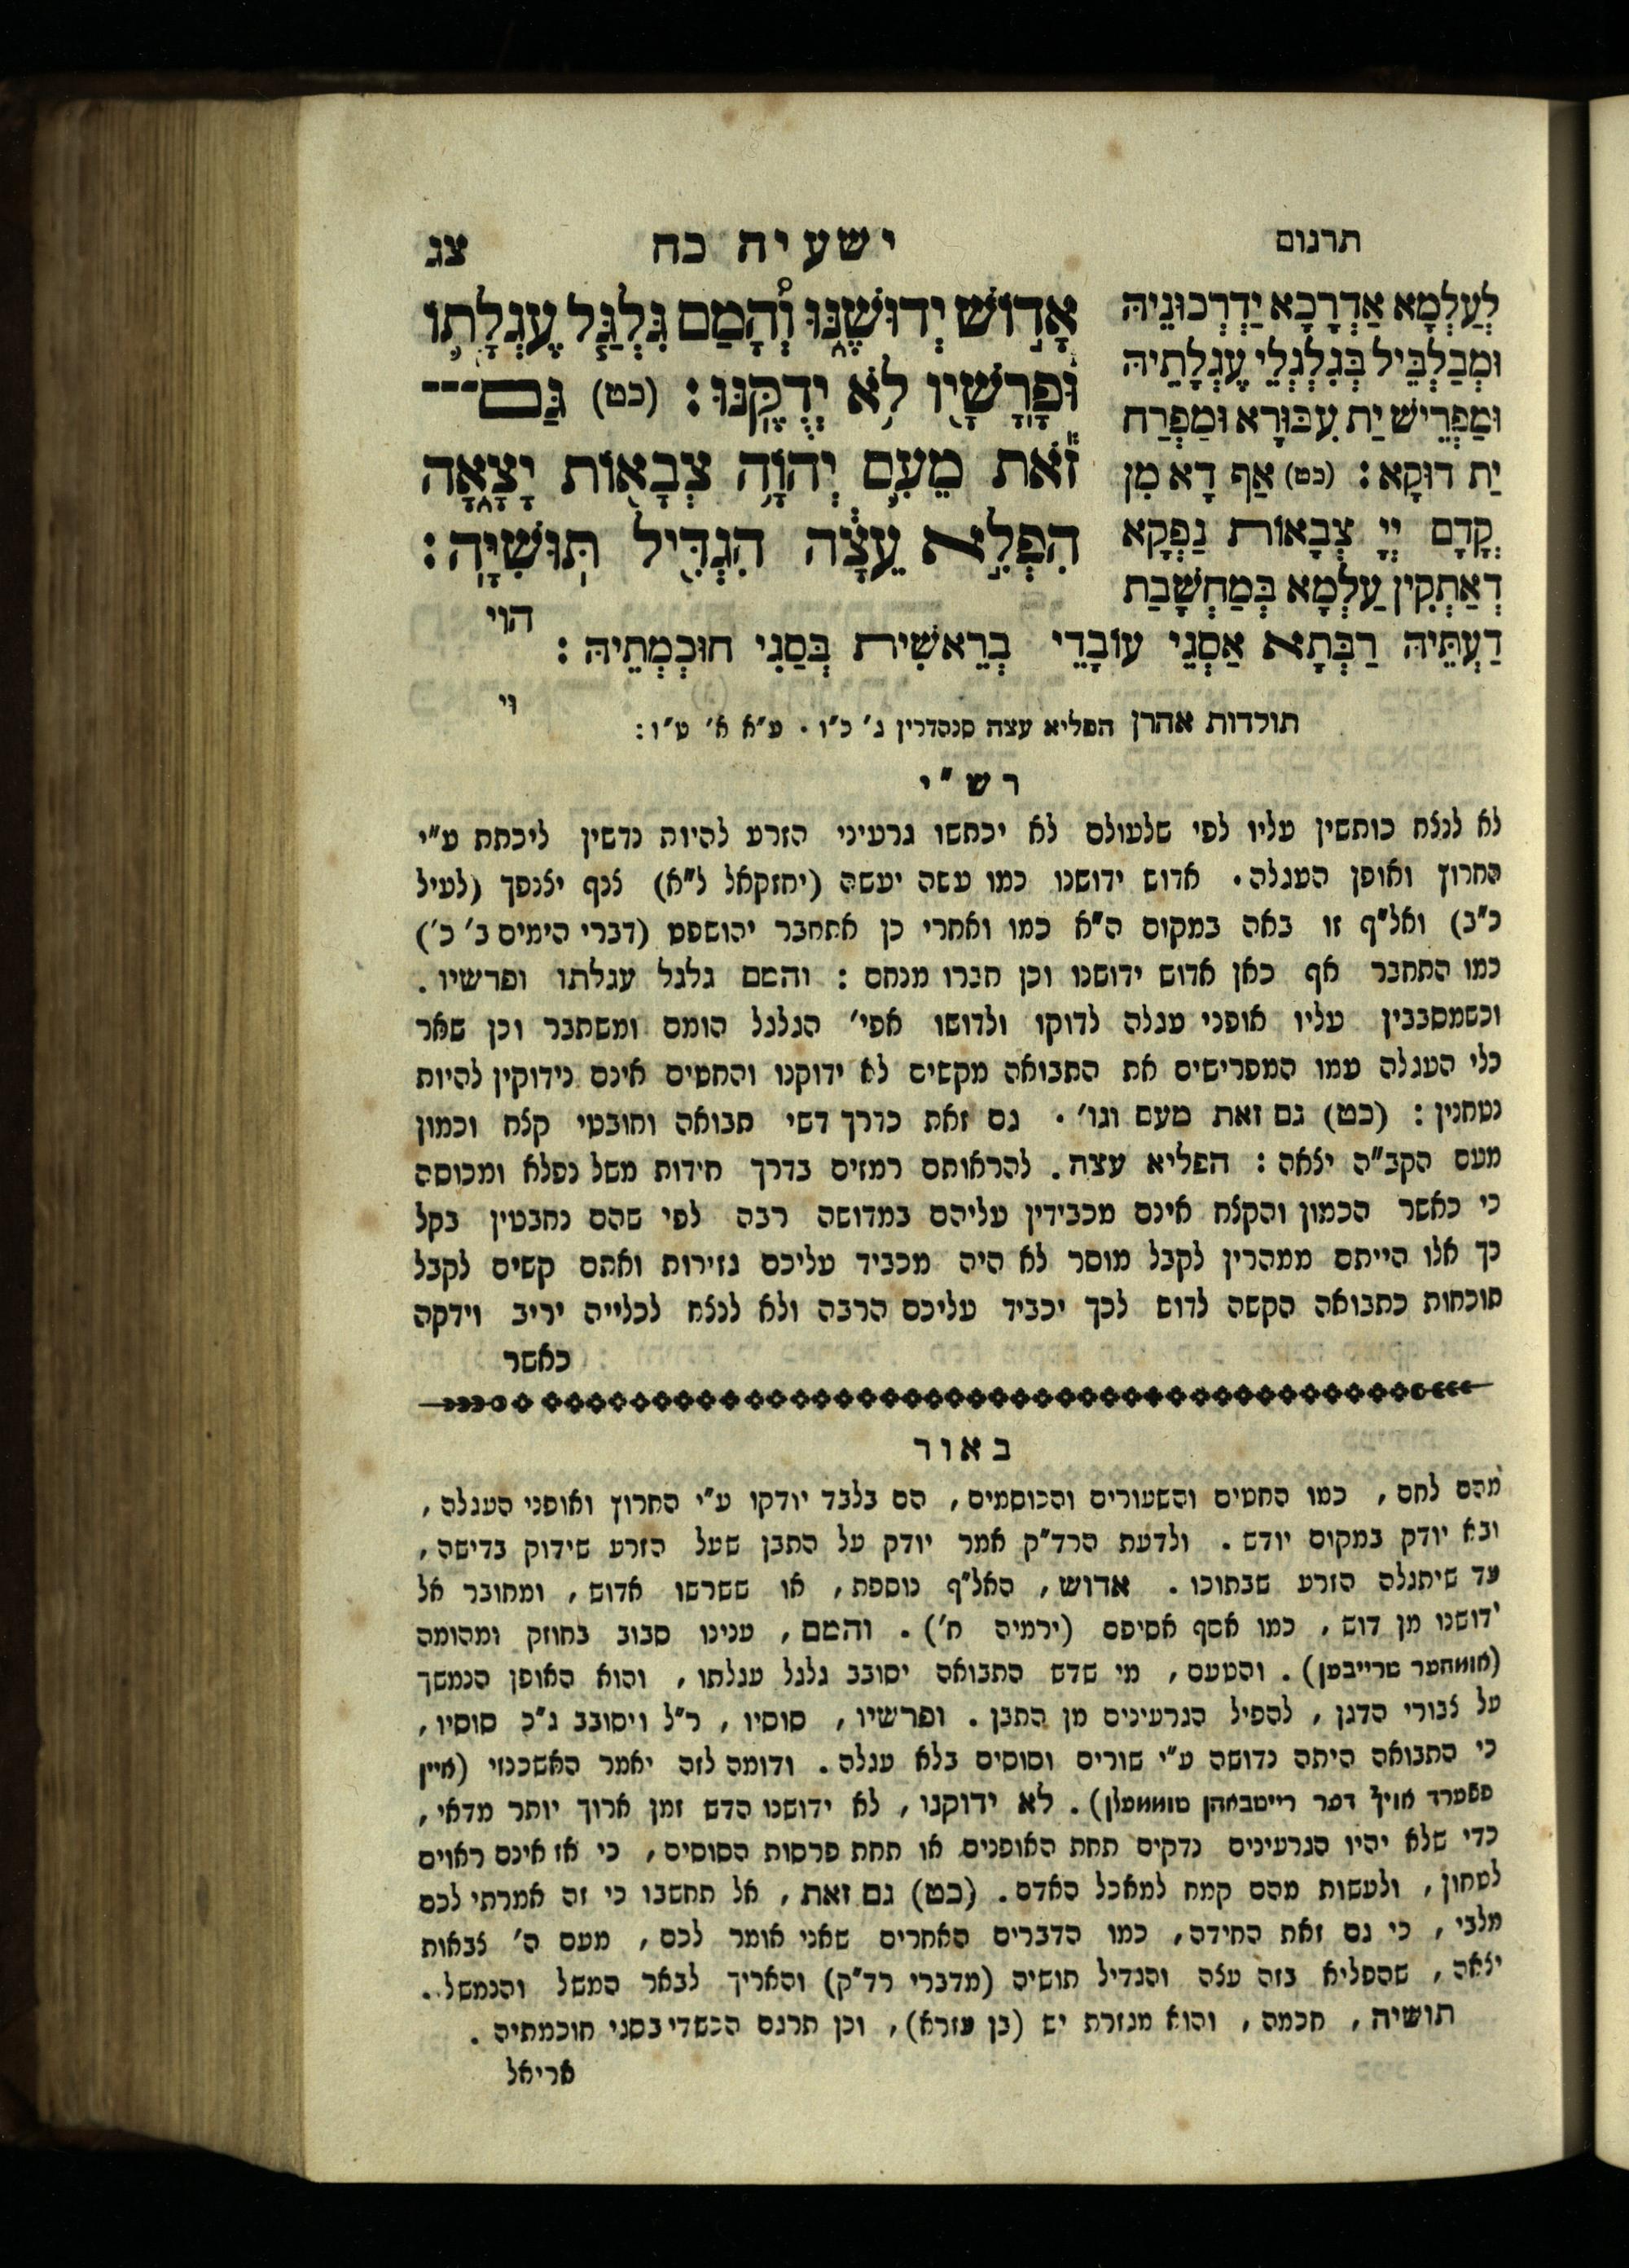 תרגום
ישעיה כח
צג
לְעַלְמָא אַדְרָכָא יַדְרְכוּנֵיהּ
וּמְבַלְבֵּיל בְּגִלְגְלֵי עֶגְלָתֵיהּ
וּמַפְרֵישׁ יַת עִבּוּרָא וּמַפְרַח
יַת דוּקָא: (כט) אַף דָא מִן
קֳדָם יְיָ צְבָאוֹת נַפְקָא
דְאַתְקִין עַלְמָא בְּמַחְשְׁבַת
דַעְתֵּיהּ רַבְּתָא אַסְגֵי עוֹבָדֵי בְרֵאשִׁית בְּסַגִי חוּכְמְתֵיהּ:
אָד֣וֹשׁ יְדוּשֶׁ֑נּוּ וְ֠הָמַם גִּלְגַּ֧ל עֶגְלָת֛וֹ
וּפָרָשָׁ֖יו לֹֽא יְדֻקֶּֽנּוּ: (כט) גַּם־
זֹ֕את מֵעִ֛ם יְהוָֹ֥ה צְבָא֖וֹת יָצָ֑אָה
הִפְלִ֣יא עֵצָ֔ה הִגְדִּ֖יל תּֽוּשִׁיָּֽה:
הוי
וי
תולדות אהרן הפליא עצה סנהדרין ג׳ כ״ו. ע״א א׳ ט״ו:
רש״י
לא לנצח כותשין עליו לפי שלעולם לא יכתשו גרעיני הזרע להיות נדשין ליכתת ע״י
החרוץ ואופן העגלה. אדוש ידושנו כמו עשה יעשה (יחזקאל ל״א) צנף יצנפך (לעיל
כ״ב) ואל״ף זו באה במקום ה״א כמו ואחרי כן אתחבר יהושפט (דברי הימים ב׳ כ׳)
כמו התחבר אף כאן אדוש ידושנו וכן חברו מנחם: והמם גלגל עגלתו ופרשיו.
וכשמסבבין עליו אופני עגלה לדוקו ולדושו אפי׳ הגלגל הומם ומשתבר וכן שאר
כלי העגלה עמו המפרישים את התבואה מקשים לא ידוקנו והחטים אינם נידוקין להיות
נטחנין: (כט) גם זאת מעם וגו׳. גם זאת כדרך דשי תבואה וחובטי קצח וכמון
מעם הקב״ה יצאה: הפליא עצה. להראותם רמזים בדרך חידות משל נפלא ומכוסה
כי כאשר הכמון והקצח אינם מכבידין עליהם במדושה רבה לפי שהם נחבטין בקל
כך אלו הייתם ממהרין לקבל מוסר לא היה מכביד עליכם גזירות ואתם קשים לקבל
תוכחות כתבואה הקשה לדוש לכך יכביד עליכם הרבה ולא לנצח לכלייה יריב וידקה
כאשר
באור
מהם לחם, כמו החטים והשעורים והכוסמים, הם בלבד יודקו ע״י החרוץ ואופני העגלה,
ובא יודק במקום יודש. ולדעת הרד״ק אמר יודק על התבן שעל הזרע שידוק בדישה,
עד שיתגלה הזרע שבתוכו. אדוש, האל״ף נוספת, או ששרשו אדוש, ומחובר אל
ידושנו מן דוש, כמו אסף אסיפם (ירמיה ח׳). והמם, ענינו סבוב בחוזק ומהומה
(אומהער טרייבען). והטעם, מי שדש התבואה יסובב גלגל עגלתו, והוא האופן הנמשך
על צבורי הדגן, להפיל הגרעינים מן התבן. ופרשיו, סוסיו, ר״ל ויסובב ג״כ סוסיו,
כי התבואה היתה נדושה ע״י שורים וסוסים בלא עגלה. ודומה לזה יאמר האשכנזי (איין
פפערד אויף דער רייטבאהן טוממעלן). לא ידוקנו, לא ידושנו הדש זמן ארוך יותר מדאי,
כדי שלא יהיו הגרעינים נדקים תחת האופנים או תחת פרסות הסוסים, כי אז אינם ראוים
לטחון, ולעשות מהם קמח למאכל האדם. (כט) גם זאת, אל תחשבו כי זה אמרתי לכם
מלבי, כי גם זאת החידה, כמו הדברים האחרים שאני אומר לכם, מעם ה׳ צבאות
יצאה, שהפליא בזה עצה והגדיל תושיה (מדברי רד״ק) והאריך לבאר המשל והנמשל.
תושיה, חכמה, והוא מגזרת יש (בן עזרא), וכן תרגם הכשדי בסגי חוכמתיה.
אריאל